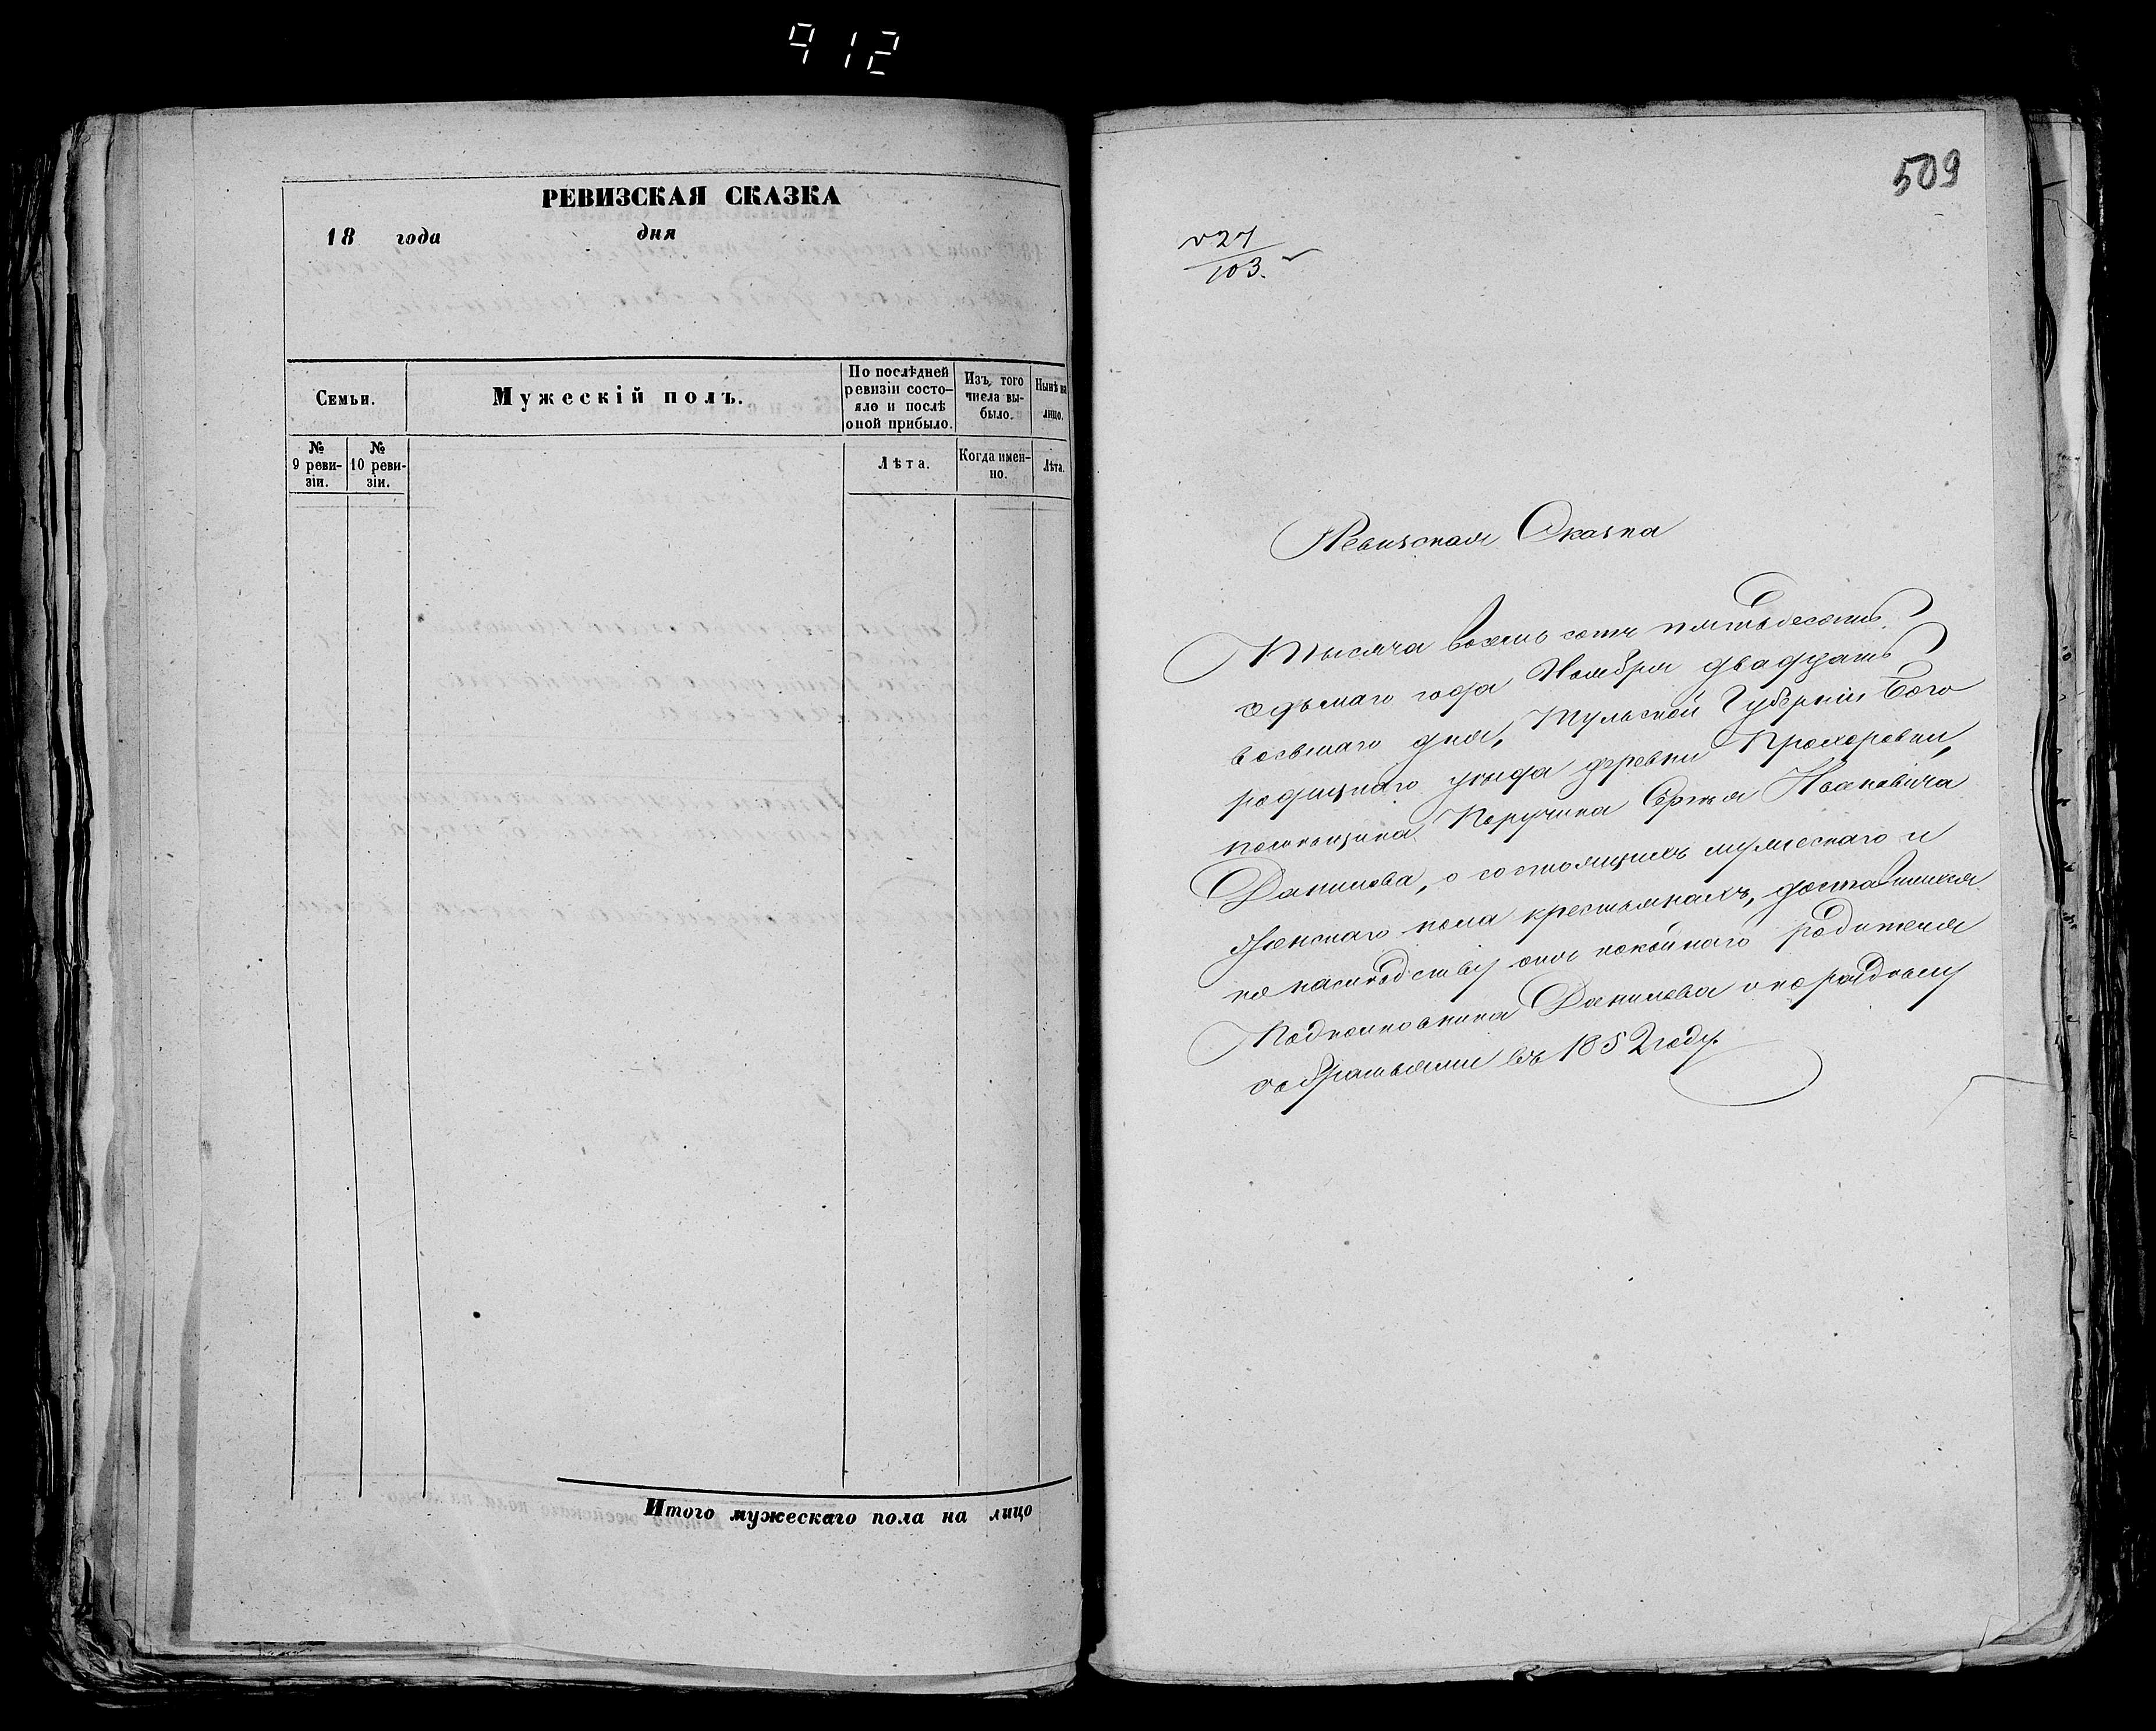 912
РЕВИЗСКАЯ СКАЗКА
18 года дня
Семьи.
Мужескій полъ.
По послѣдней
ревизіи состо-
яло и послѣ
оной прибыло.
Изъ того
числа вы-
было.
Нынѣ на
лицо.
№
9 реви-
зіи.
№
10 реви-
зіи.
Лѣта.
Когда имен-
но.
Лѣта.
Итого мужескаго пола на лицо
509
103.
Ревизская Сказка
Тысяча восемь сотъ пятьдесятъ
седьмаго года Ноября двадцать
восьмаго дня, Тульской Губерніи Бого
родицкаго уѣзда деревни Прохоровки,
помѣщика Поручика Сергѣя Ивановича
Данилова, о состоящихъ мужескаго и
женскаго пола крестьянахъ, доставшихся
по наслѣдству отъ покойнаго родителя
Подполковника Данилова и по раздѣлу
съ братьями въ 1852 году.